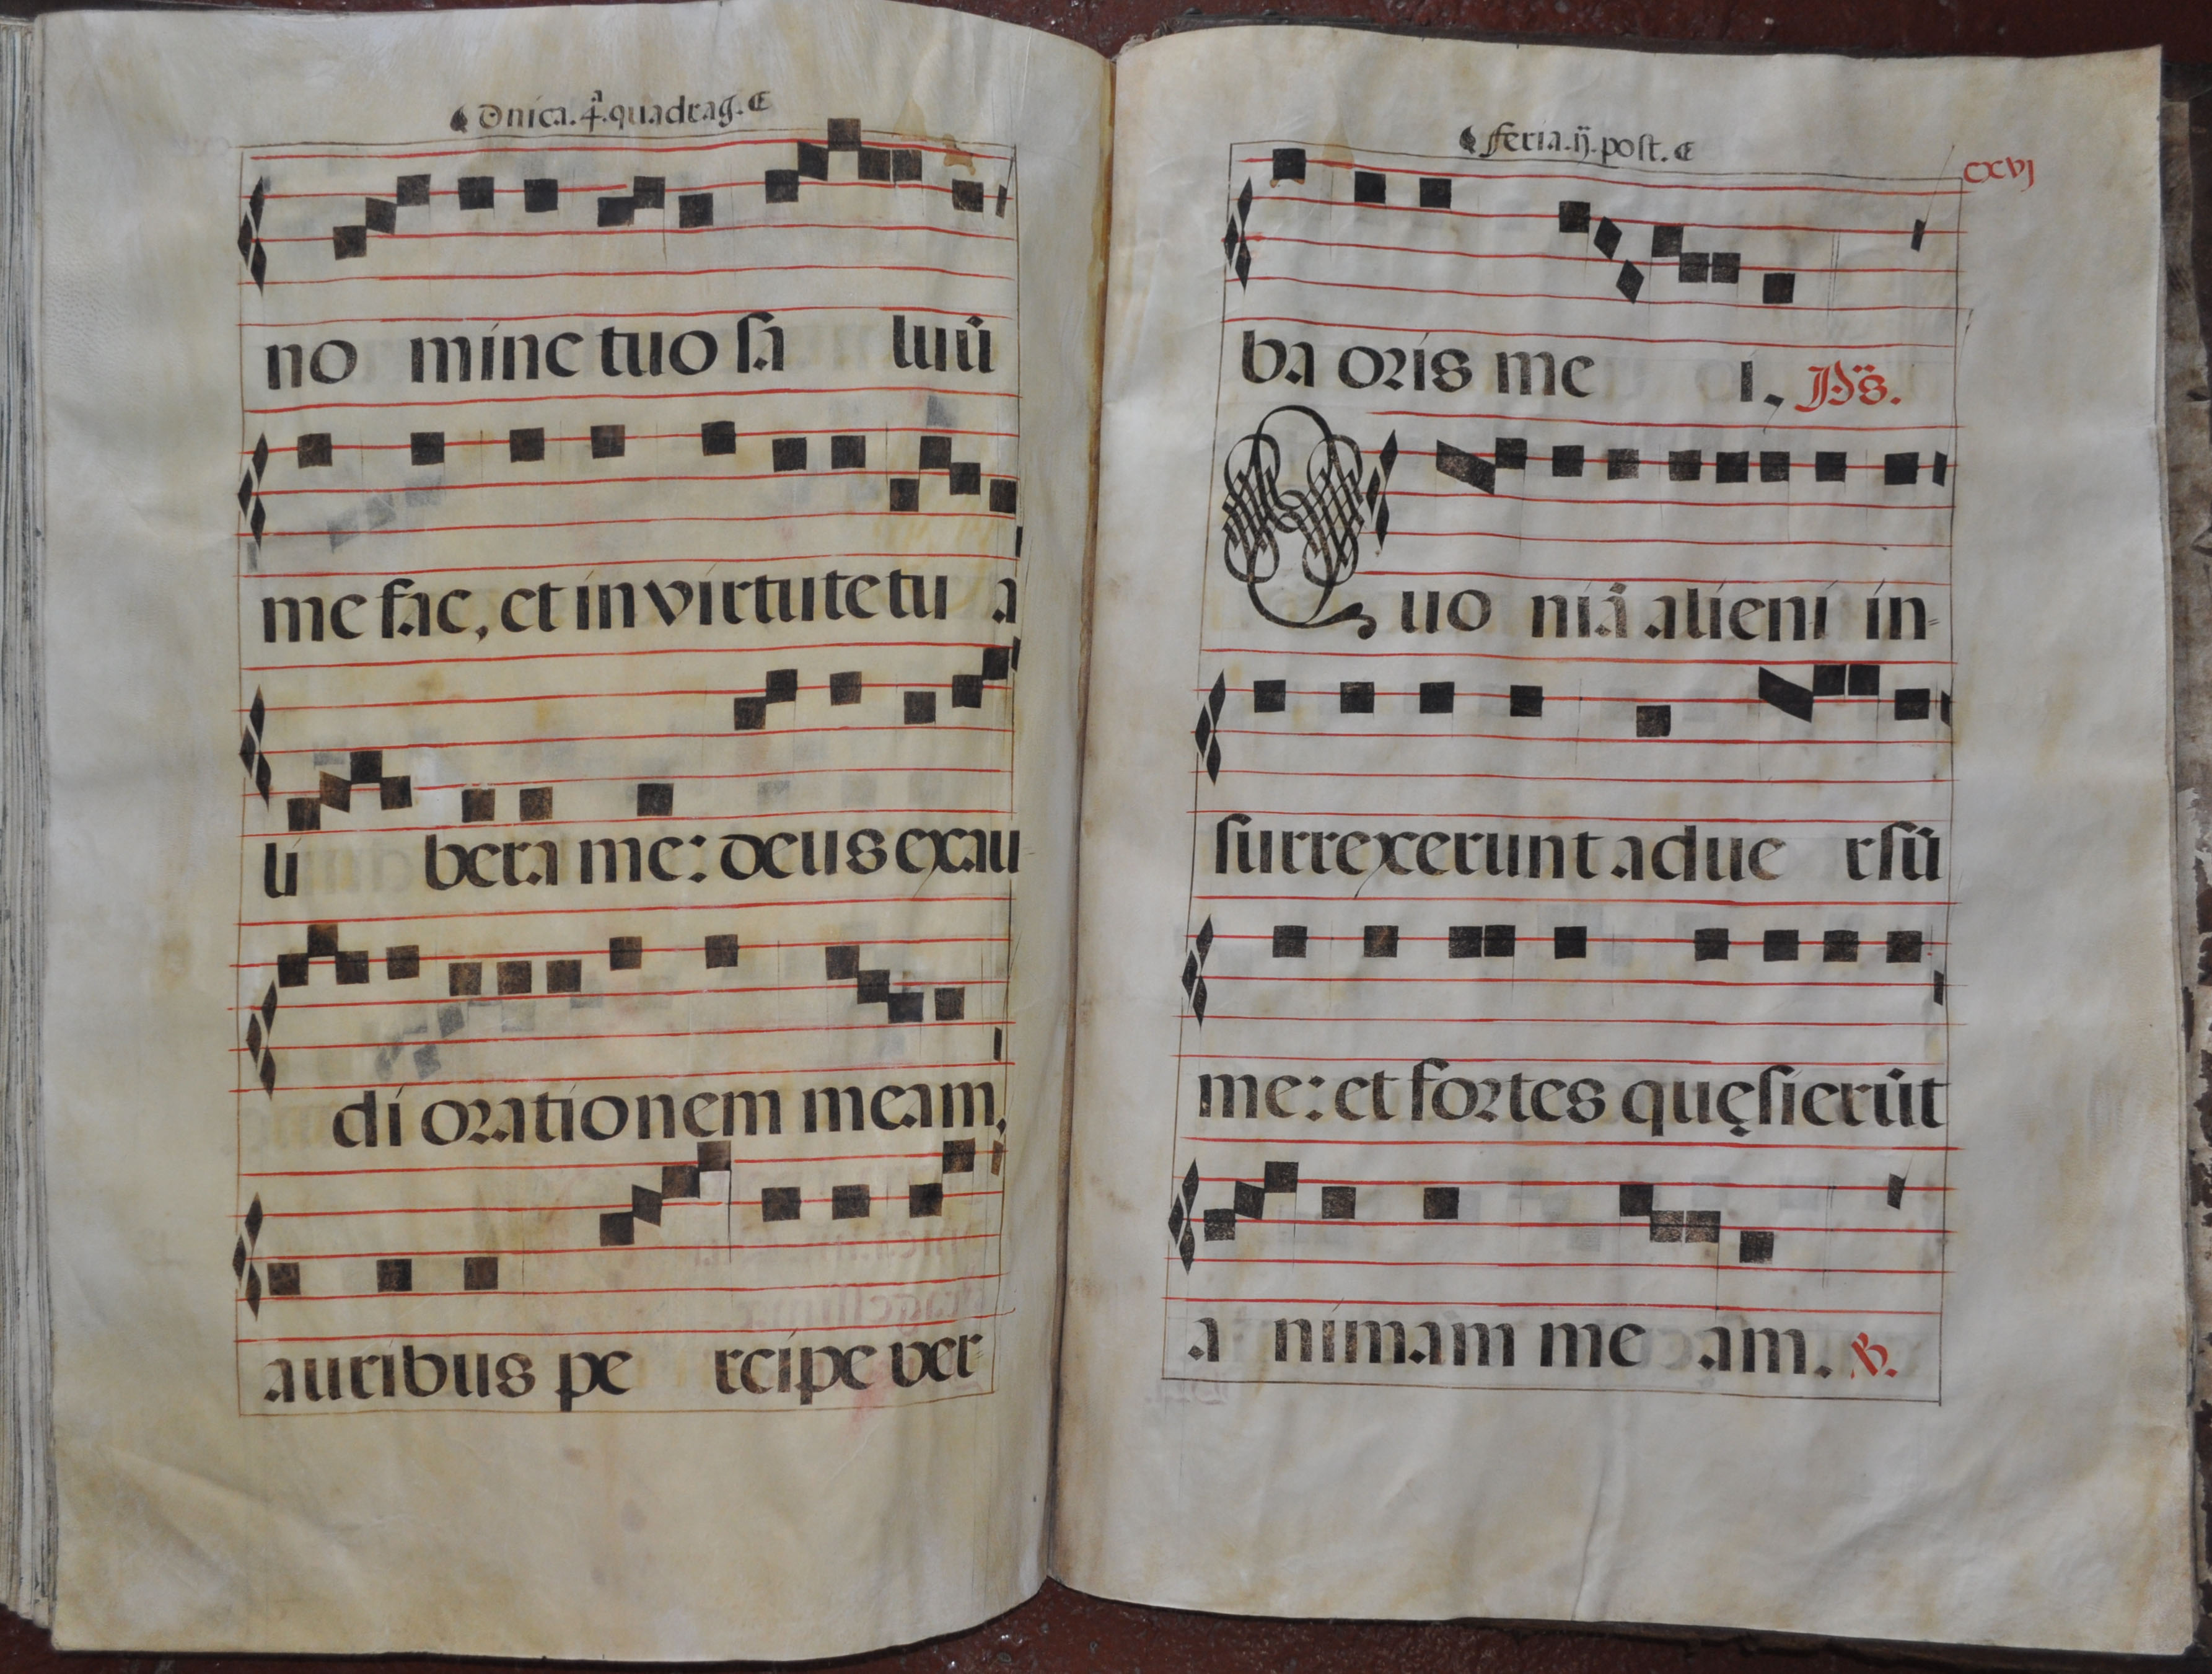 Dnica.4ª.quadrag.
no mine tuo sa luū
me fac, et in virtute tu a
li bera me: deus exau
di orationem meam,
auribus pe rcipe ver
feria.ij.post.
cxvj
ba oris me i, Ps.
Quo niā alieni in-
surrexerunt adue rsū
me: et fortes quęsierūt
a nimam me am. R.